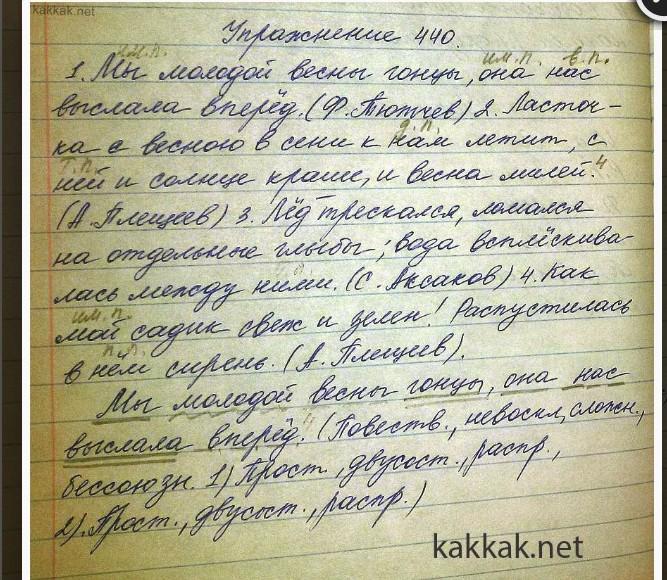 kakkak.net
Упражнение 440.
им.п. им.п. в.п.
1. Мы молодой весны гонцы, она нас
выслала вперёд. (Ф. Тютчев) 2. Ласточ-
д.п.
ка с весною в сени к нам летит, с
т.п. 4
ней и солнце краше, и весна милей.
(А. Плещеев) 3. Лёд трескался, ломался
на отдельные глыбы; вода всплёскива-
лась между ними. (С. Аксаков) 4. Как
им.п.
мой садик свеж и зелен! Распустилась
п.п.
в нём сирень. (А. Плещеев).
Мы молодой весны гонцы, она нас
выслала вперёд. 4 (Повеств., невоскл, сложн.,
бессоюзн. 1) Прост., двусост., распр.,
2). Прост., двусост., распр.)
kakkak.net